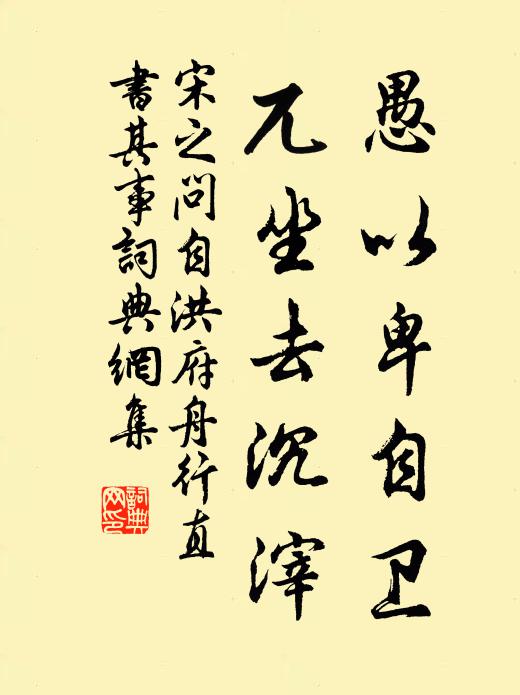 愚以卑自卫
兀坐去沉滓
宋之问自洪府舟行直
書其事詞典網集
詞典網印